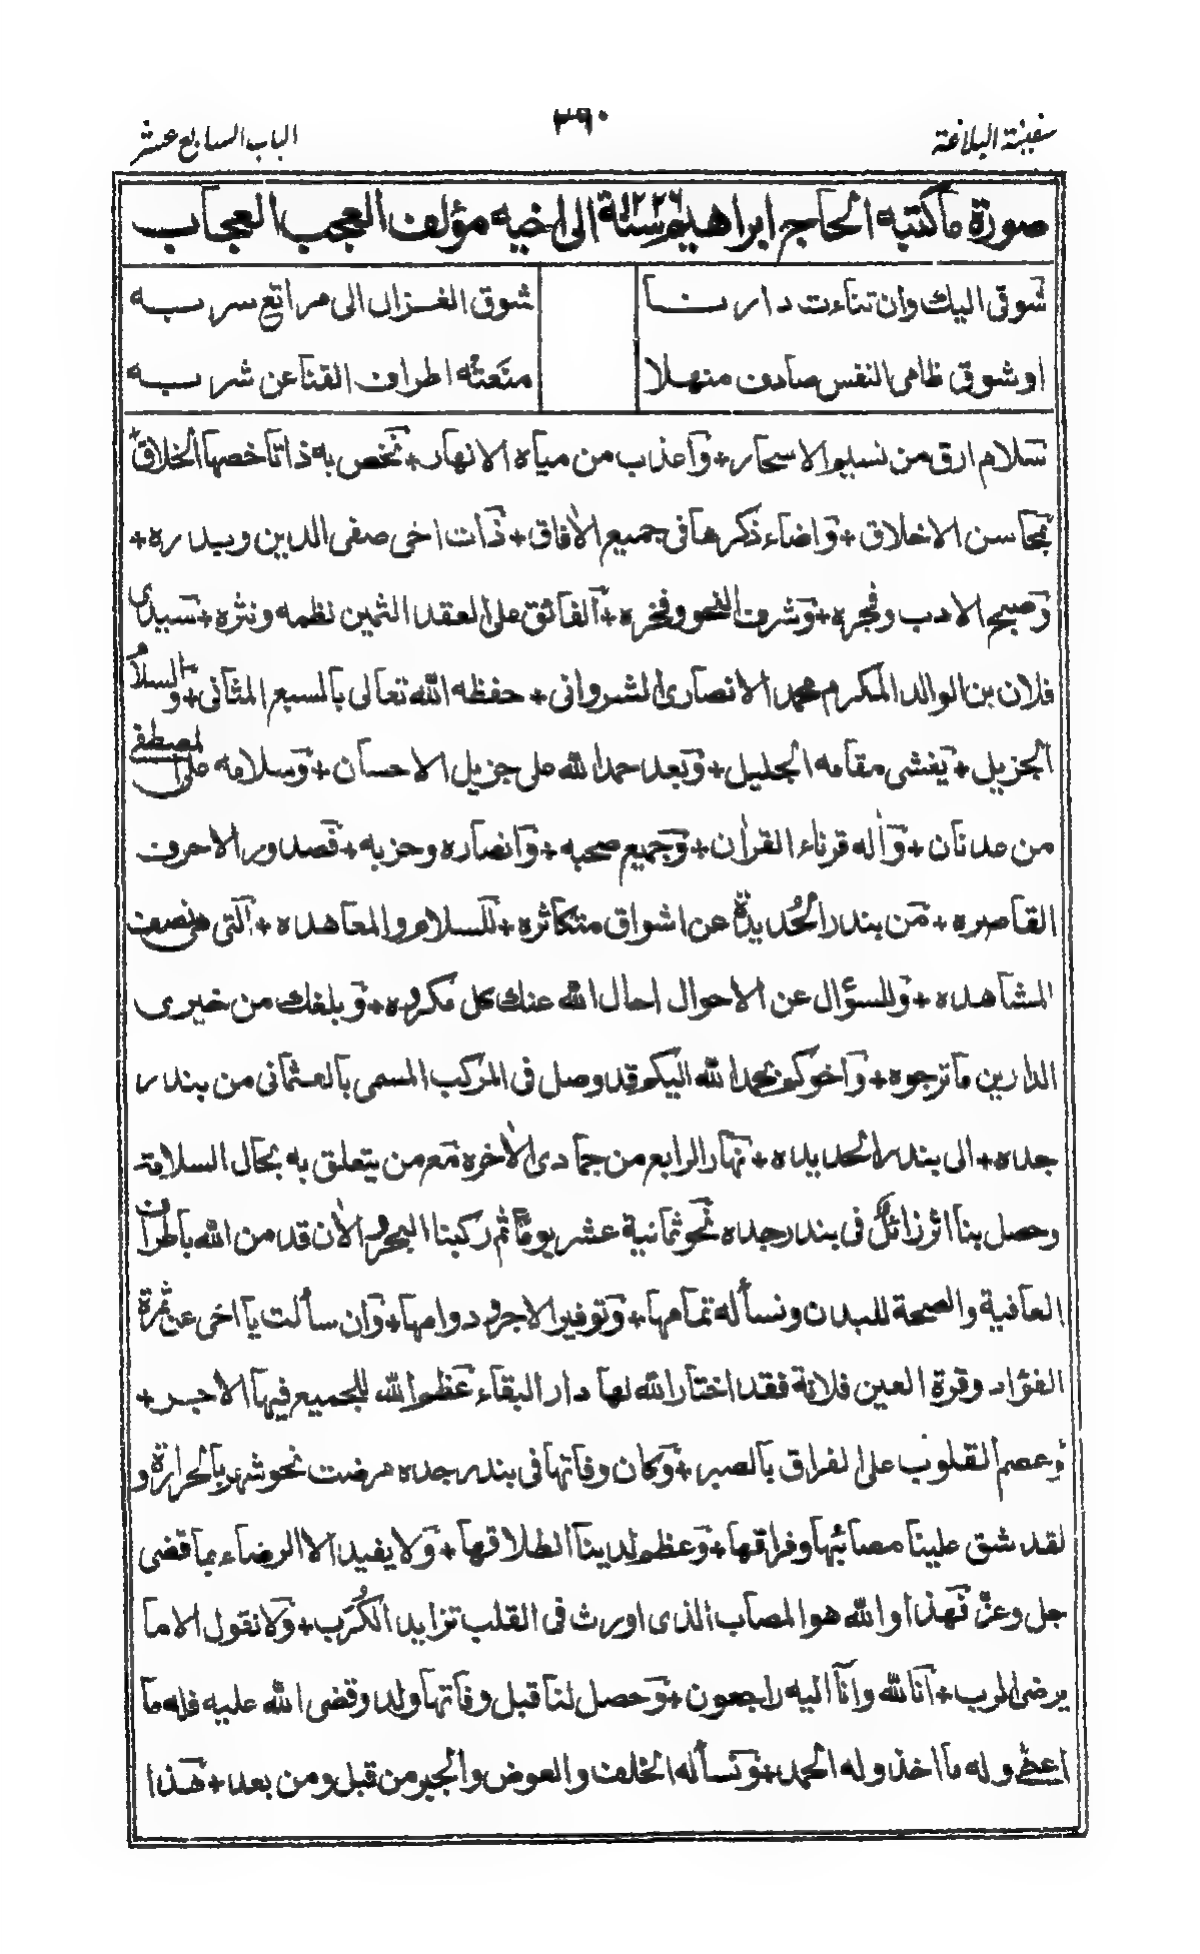 سفينة البلاغة
٣٩٠
الباب السابع عشر
صورة ما كتبه الحاج ابراهيم سنة ١٢٢٦ الى اخيه مؤلف العجب العجاب
شوقى اليك وان تناءت دارنا
شوق الغزال الى مراتع سربه
او شوق ظامى النفس صادف منهلا
منعته اطراف القنا عن شربه
سلام ارق من نسيم الاسحار + واعذب من مياه الانهار + نخص به ذاتا خصها الخلاق
بمحاسن الاخلاق + واضاء ذكرها فى جميع الأفاق + ذات اخى صفى الدين وبدره +
وصبح الادب وفجره + وشرف النحو وفخره + الفائق على العقد الثمين نظمه ونثره + سيدى
فلان بن الوالد المكرم محمد الانصارى الشروانى + حفظه الله تعالى بالسبع المثانى + والسلام
الجزيل + يغشى مقامه الجليل + وبعد حمدا لله على جزيل الاحسان + وسلامه على المصطفى
من عدنان + وأله قرناء القرأن + وجميع صحبه + وانصاره وحزبه + فصدور الاحرف
القاصره + من بندر الحُديدة عن اشواق متكاثره + للسلام والمعاهده + التى هى نصف
المشاهده + وللسؤال عن الاحوال احال الله عنك كل مكروه + وبلغك من خيرى
الدارين ما ترجوه + واخوكم بحمدا لله اليكم قد وصل فى المركب المسمى بالعثمانى من بندر
جده + الى بندر الحديده + نهار الرابع من جمادى الأخره مع من يتعلق به بحال السلامة
وحصل بنا اثر زائل فى بندر جده نحو ثمانية عشر يوما ثم ركبنا البحر والأن قد من الله باطراف
العافية والصحة للبدن ونسأله تمامها + وتوفير الاجر ودوامها + وان سألت يا اخى عن ثمرة
الفؤاد وقرة العين فلانة فقد اختار الله لها دار البقاء عظم الله للجميع فيها الاجر +
وعصم القلوب على الفراق بالصبر + وكان وفاتها فى بندر جده مرضت نحو شهر بالحرارة و
لقد شق علينا مصائبها وفراقها + وعظم لدينا انطلاقها + ولا يفيد الا الرضاء بما قضى
جل وعز فهذا والله هو المصاب الذى اورث فى القلب تزايد الكُرَب + ولا نقول الا ما
يرضى الرب + انا لله وانا اليه راجعون + وحصل لنا قبل وفاتها ولد وقضى الله عليه فله ما
اعطى وله ما اخذ وله الحمد + ونسأله الخلف والعوض والجبر من قبل ومن بعد + هذا